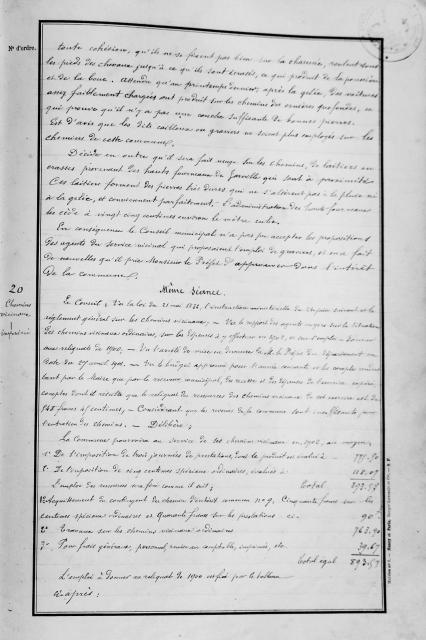 N° d'ordre.
toute cohésion, qu'ils ne se fixent pas bien sur la chaussée, roulent sous
les pieds des chevaux jusqu'à ce qu'ils soient écrasés, ce qui produit de la poussière
et de la boue. Attendu qu'au printemps dernier, après la gelée, des voitures
assez faiblement chargées ont produit sur les chemins des ornières profondes, ce
qui prouve qu'il n'y a pas une couche suffisante de bonnes pierres.
Est d'avis que les dits cailloux ou graviers ne soient plus employés sur les
chemins de cette commune.
Décide en outre qu'il sera fait usage sur les chemins, de laitiers ou
crasses provenant des hauts fourneaux de Joeuf qui sont à proximité
Ces laitiers forment des pierres très dures qui ne s'altèrent pas à la pluie ni
à la gelée, et conviennent parfaitement. L'administration des hauts fourneaux
les cède à vingt cinq centimes environ le mètre cube.
En conséquence le Conseil municipal n'a pas pu accepter les propositions
des agents du service vicinal qui proposaient l'emploi de graviers, et en a fait
de nouvelles qu'il prie Monsieur le Préfet d'approuver dans l'intérêt
de la commune.
20
Chemins
vicinaux
Même Séance.
Le Conseil ; Vu la loi du 21 mai 1836, l'instruction ministérielle du et le
règlement général sur les chemins vicinaux, — Vu le rapport des agents voyers sur la situation
des chemins vicinaux ordinaires, sur les dépenses à y effectuer en 1902, et sur l'emploi à donner
aux reliquats de 1900, — Vu l'arrêté de mise en demeure de M. le Préfet du département en
date du 27 avril 1901, — Vu le budget approuvé pour l'année courante et les comptes rendus
tant par le Maire que par le receveur municipal, des recettes et des dépenses de l'exercice
comptes dont il résulte que le reliquat des ressources des chemins vicinaux de cet exercice est de
francs 47 centimes, — Considérant que les revenus de la commune sont insuffisants pour
l'entretien des chemins. — Délibère ;
La Commune pourvoira au service de ses chemins vicinaux en 1902, au moyen,
1° De l'imposition de trois journées de prestations, dont le produit est évalué à —
2° De l'imposition de cinq centimes spéciaux ordinaires, évalués à
L'emploi des ressources se fera comme il suit ; total
1° Acquittement du contingent du chemin d'intérêt commun n° 9, Cinquante francs sur les
centimes spéciaux ordinaires et Quarante francs sur les prestations. ci- 90
2° Travaux sur les chemins vicinaux ordinaires 763.90
3° Pour frais généraux, personnel, remise au comptable, imprimés, etc. 39.67
total égal 893.57
L'emploi à donner au reliquat de 1900 est fixé par le tableau
ci-après :